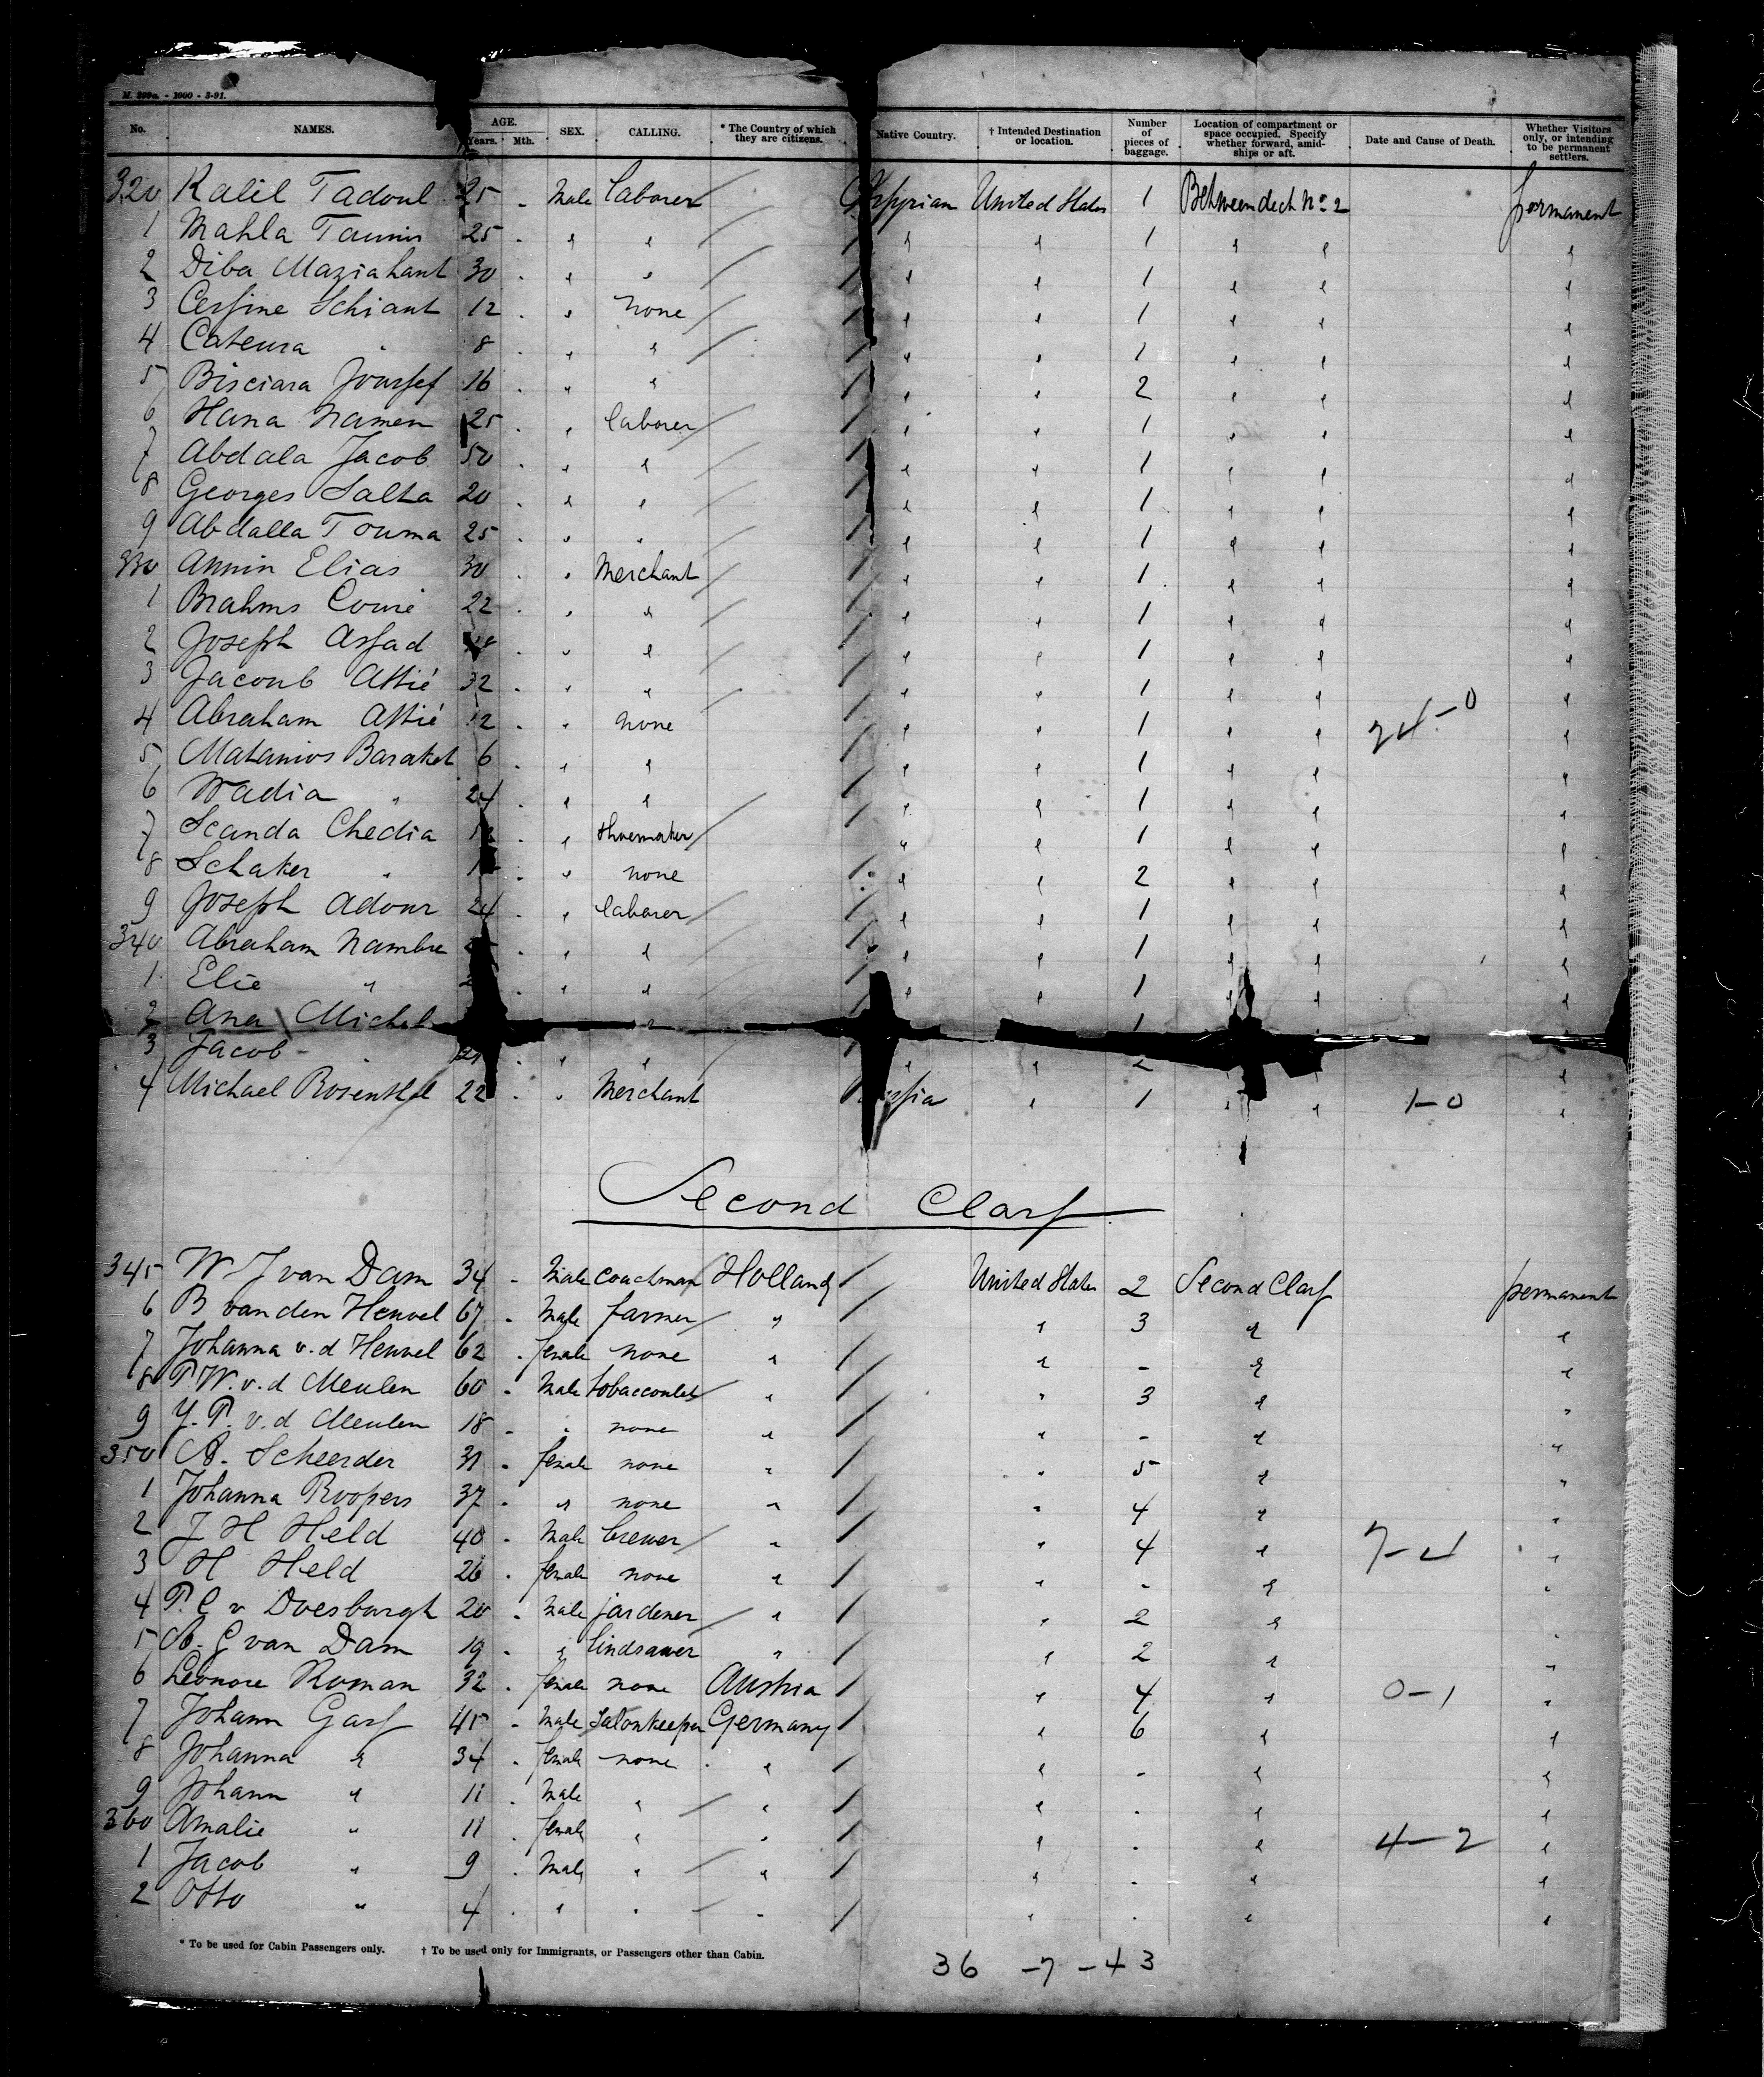 M. 399a. - 1000 - 3-91.
No. NAMES. AGE. Years. Mth. SEX. CALLING. * The Country of which they are citizens. Native Country. † Intended Destination or location. Number of pieces of baggage. Location of compartment or space occupied. Specify whether forward, amidships or aft. Date and Cause of Death. Whether Visitors only, or intending to be permanent settlers.
320 Kalil Tadoul 25 - Male laborer United States 1 Betweendeck No 2 permanent
1 Mahla Tannis 25 . " " " " 1 " " "
2 Diba Maziahant 30 . " " " " 1 " " "
3 Cessine Schiant 12 . " none " " 1 " " "
4 Cateura " 8 . " " " " 1 " " "
5 Bisciara Joussef 16 " " " " 2 " " "
6 Hana Namen 25 . " laborer " " 1 " " "
7 Abdala Jacob 50 . " " " " 1 " " "
8 Georges Salta 20 . " " " " 1 " " "
9 Abdalla Touma 25 . " " " " 1 " " "
330 Annin Elias 30 . " Merchant " " 1 " " "
1 Brahms Couri 22 . " " " " 1 " " "
2 Joseph Assad . " " " " 1 " " "
3 Jacoub Attié 32 . " " " " 1 " " "
4 Abraham Attié 12 . " none " " 1 " " 24-0 "
5 Matanios Baraket 6 . " " " " 1 " " "
6 Wadia " 24 . " " " " 1 " " "
7 Scanda Chedia . " shoemaker " " 1 " " "
8 Schaker " . " none " " 2 " " "
9 Joseph Adour 24 . " laborer " " 1 " " "
340 Abraham Nambre . " " " " 1 " " "
1 Elie " . " " " " 1 " " "
2 Ana Michel " 1
3 Jacob - " 21 . " " " " 2 " " "
4 Michael Rosenthal 22 . " Merchant " 1 " " 1-0 "
Second Class
345 W J van Dam 34 - Male coachman Holland United States 2 Second Class permanent
6 B van den Heuvel 67 - Male farmer " " 3 " "
7 Johanna v. d Heuvel 62 . female none " " - " "
8 P W. v. d Meulen 60 - Male tobacconist " " 3 " "
9 Y. P. v. d Meulen 18 - " none " " - " "
350 A. Scheerder 31 - female none " " 5 " "
1 Johanna Roopers 37 - " none " " 4 " "
2 J H Held 40 - Male brewer " " 4 " 7-4 "
3 H Held 26 . female none " " - " "
4 P. C v Doesburgh 20 - Male jardener " " 2 " "
5 A. G van Dam 19 - " " " 2 " "
6 Leonore Roman 32 . female none Austria " 4 " 0-1 "
7 Johann Gass 45 - Male Salonkeeper Germany " 6 " "
8 Johanna " 34 . female none " " - " "
9 Johann " 11 . Male " " " . " "
360 Amalie " 11 . female " " " . " 4-2 "
1 Jacob " 9 . Male " " " . " "
2 Otto " 4 . " " " " . " "
* To be used for Cabin Passengers only. † To be used only for Immigrants, or Passengers other than Cabin.
36 -7 -43